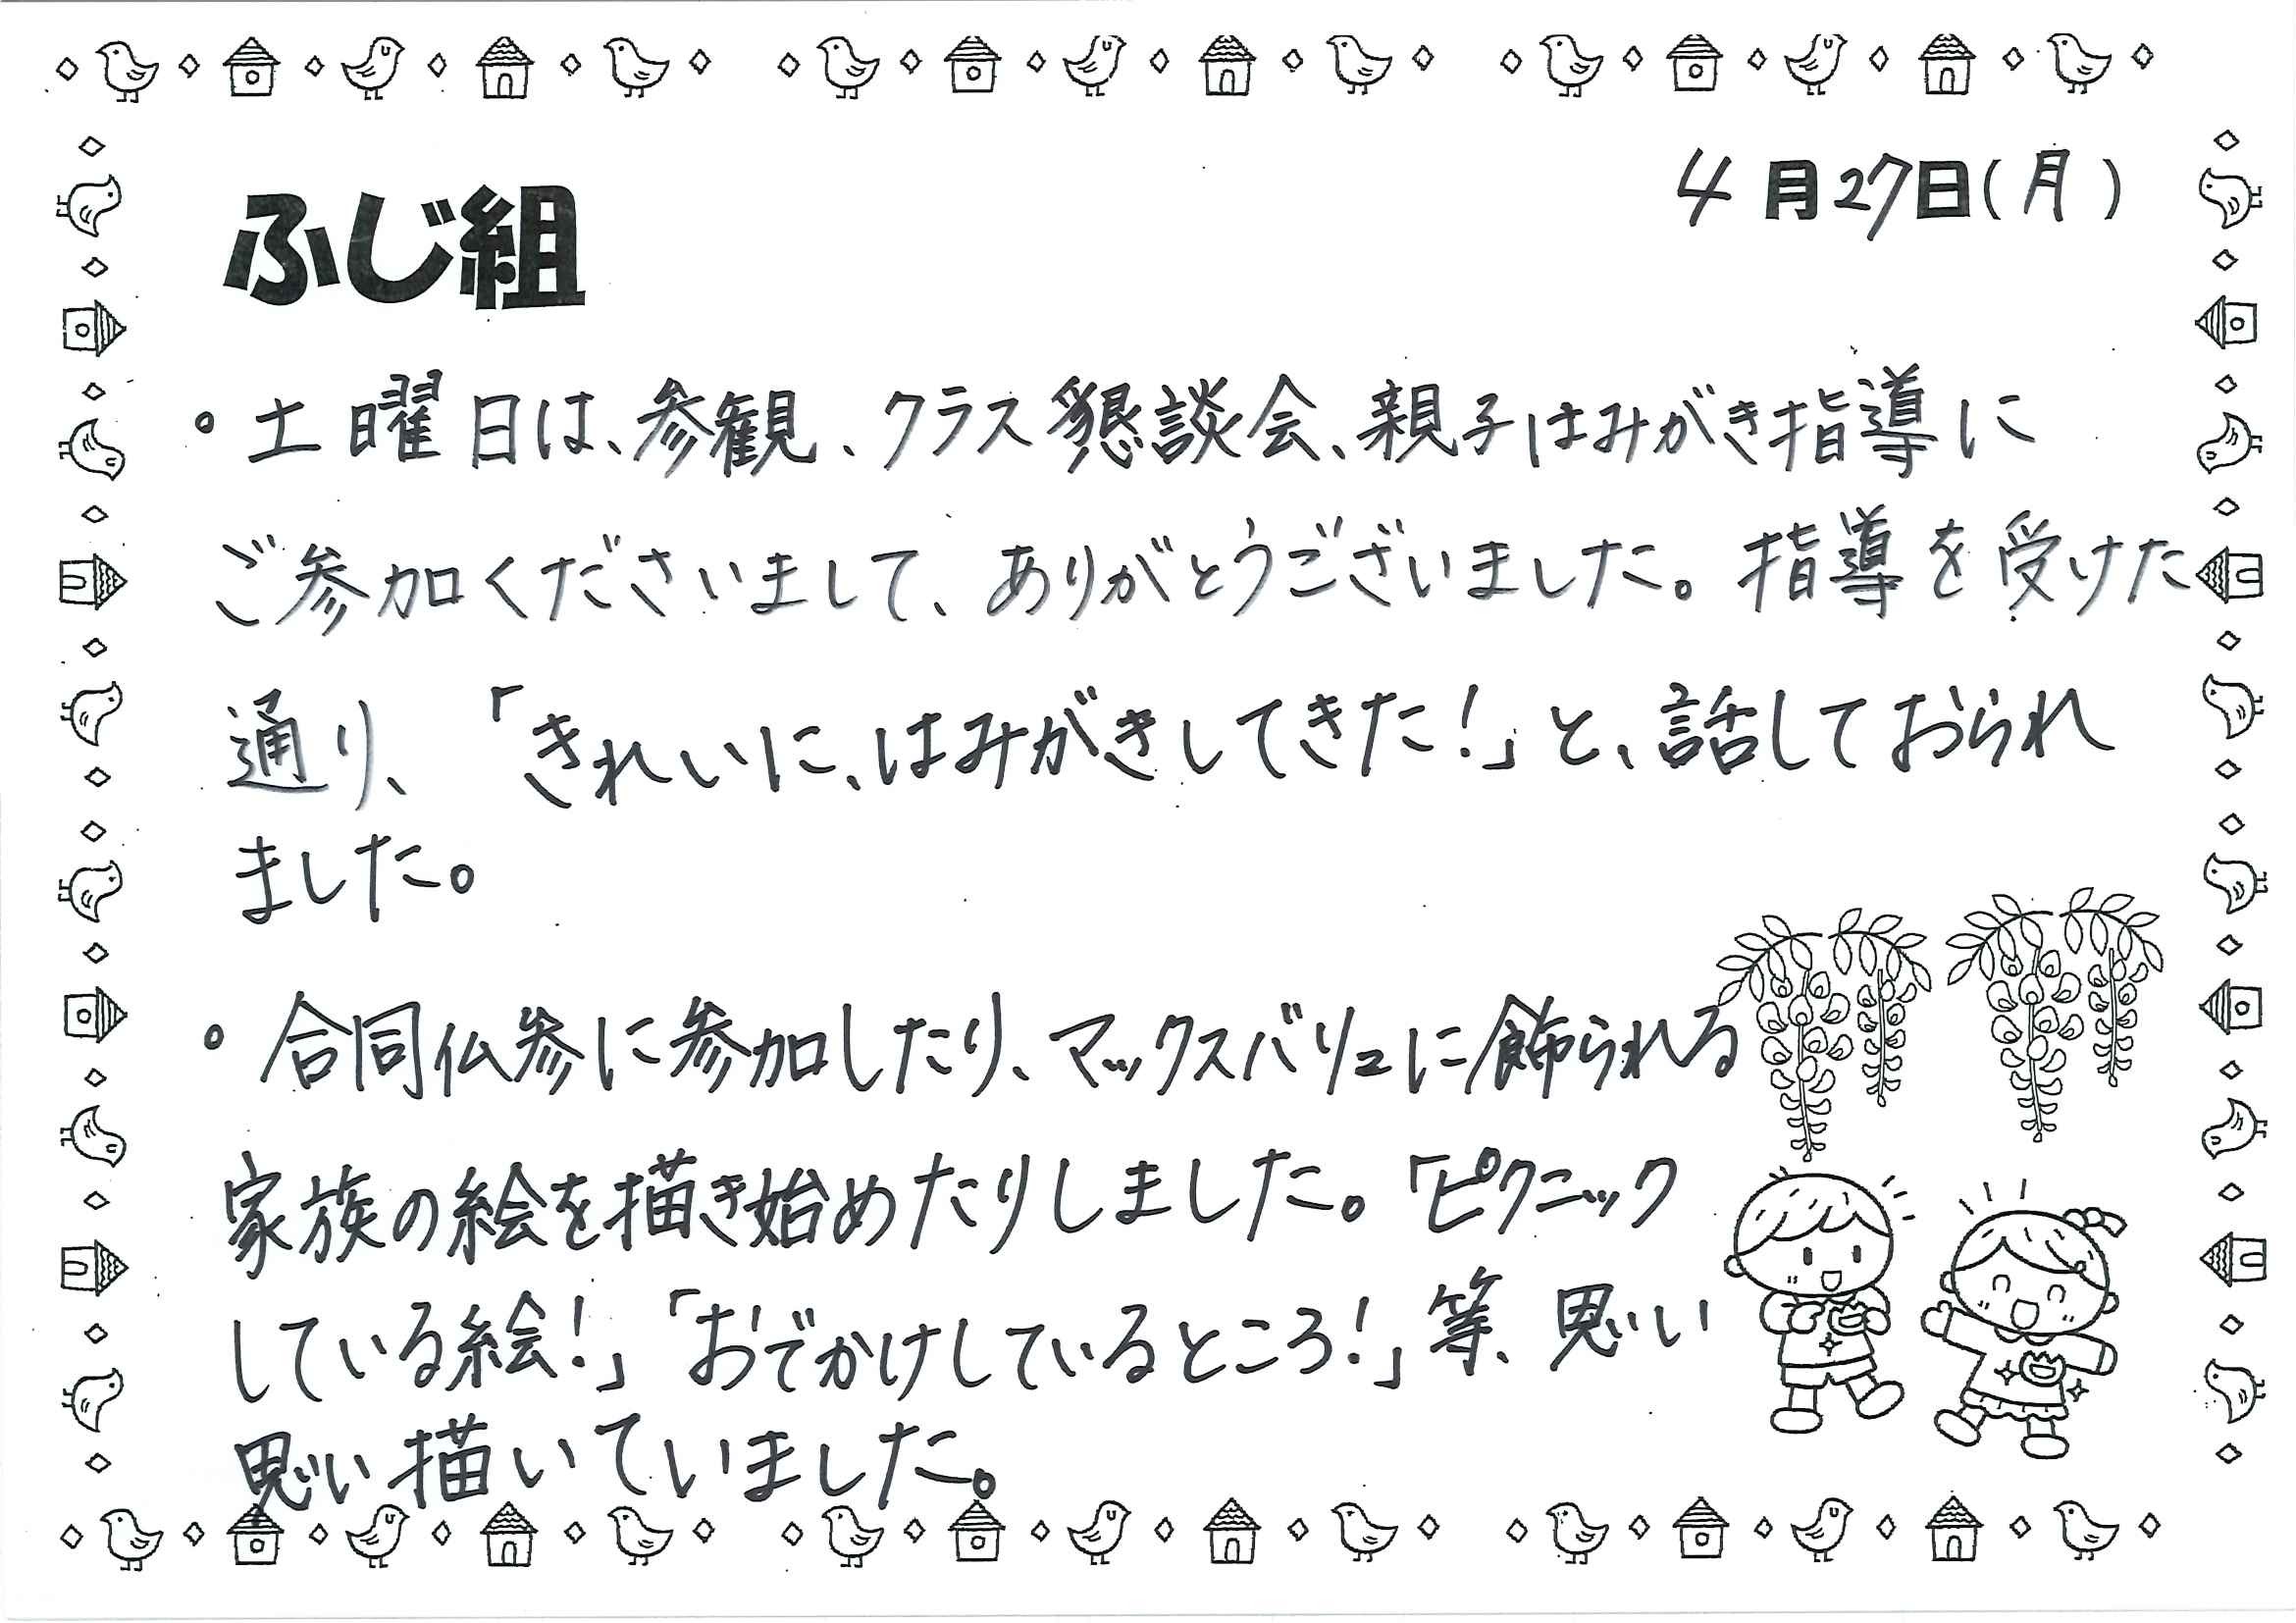 4月27日(月)
ふじ組
。土曜日は、参観、クラス懇談会、親子はみがき指導に
ご参加くださいまして、ありがとうございました。指導を受けた
通り、「きれいに、はみがきしてきた!」と、話しておられ
ました。
。合同仏参に参加したり、マックスバリュに飾られる
家族の絵を描き始めたりしました。「ピクニック
している絵!」「おでかけしているところ!」等、思い
思い描いていました。